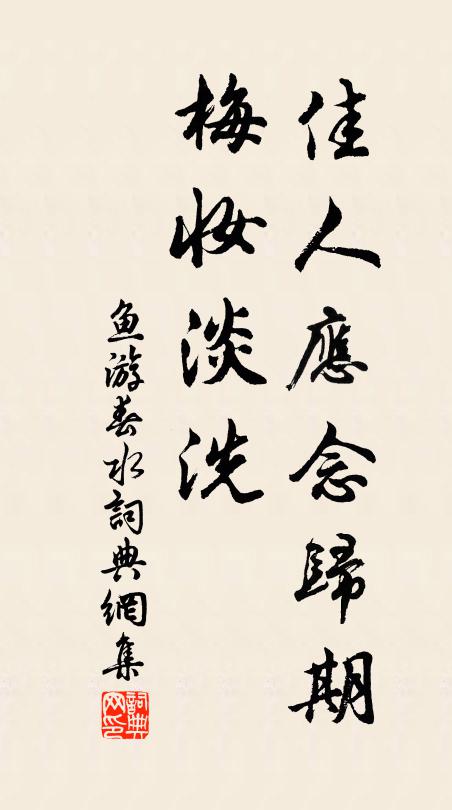 佳人應念歸期
梅妝淡洗
魚游春水詞典網集
詞典网印